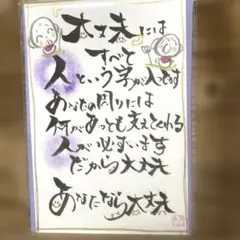 大丈夫には
すべて
人という字が入ってます
あなたの周りには
何があっても支えてくれる
人が必ずいます
だから大丈夫
あなたなら大丈夫